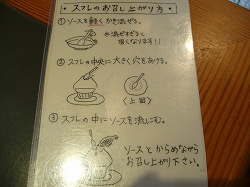 ・スフレのお召し上がり方・
①ソースを軽くかき混ぜる。
※混ぜすぎると
固くなります!!
②スフレの中央に大きく穴をあける。
(上図)
③スフレの中にソースを流しこむ。
ソースとからめながら
お召し上がり下さい。